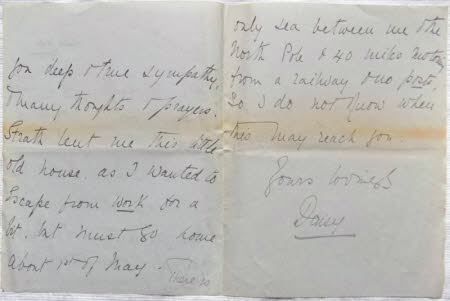 for deep & true sympathy,
& many thoghts & prayers.
Strath lent me this little
old house. as I wanted to
escape from work for a
bit. but must go home
about 1st of May - There is
only sea between me & the
North Pole & 40 miles motoring
from a railway one post.
So I do not know when
this may reach you.
Yours lovingly